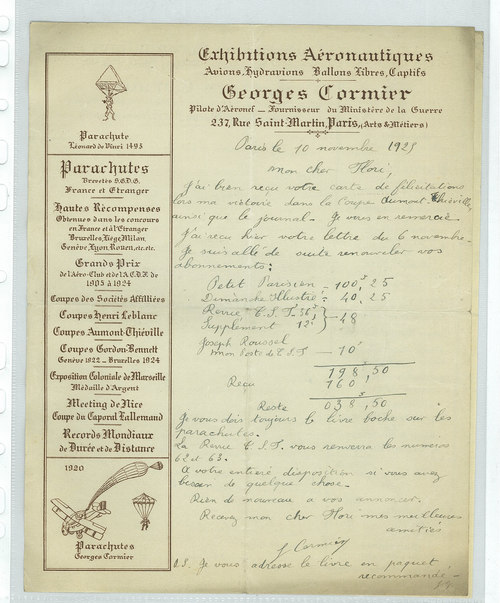 Exhibitions Aéronautiques
Avions, Hydravions Ballons Libres, Captifs
Georges Cormier
Pilote d'Aéronef — Fournisseur du Ministère de la Guerre
237, Rue Saint-Martin, Paris, (Arts & Métiers)
Parachute
Léonard de Vinci 1495
Parachutes
Brevetés S.G.D.G.
France et Etranger
Hautes Récompenses
Obtenues dans les concours
en France et à l'Étranger
Bruxelles, Liège, Milan,
Genève, Lyon, Rouen, etc. etc.
Grands Prix
de l'Aéro-Club et de l'A.C.D.F. de
1905 à 1924
Coupes des Sociétés Affiliées
Coupes Henri Leblanc
Coupes Aumont-Thiéville
Coupes Gordon-Bennett
Genève 1922 - Bruxelles 1924
Exposition Coloniale de Marseille
Médaille d'Argent
Meeting de Nice
Coupe du Caporal Lallemand
Records Mondiaux
de Durée et de Distance
1920
Parachutes
Georges Cormier
Paris le 10 novembre 1925
Mon cher Flori,
J'ai bien reçu votre carte de félicitations
lors ma victoire dans la Coupe Dumont Thiéville,
ainsi que le journal. Je vous en remercie.
J'ai reçu hier votre lettre du 6 novembre.
Je suis allé de suite renouveler vos
abonnements:
Petit Parisien — 100,25
Dimanche Illustré = 40,25
Revue T.S.F. 36 } — 48
Supplement 12
Joseph Roussel
Mon Poste de T.S.F — 10
198,50
Reçu 160
Reste 038,50
Je vous dois toujours le livre boche sur les
parachutes.
La Revue T.S.F. vous renverra les numeros
62 et 63.
A votre entière disposition si vous avez
besoin de quelque chose.
Rien de nouveau a vos annonces.
Recevez mon cher Flori mes meilleures
amitiés
G Cormier
P.S. Je vous adresse le livre en paquet
recommandé.